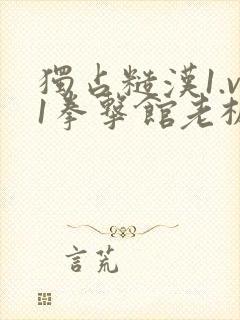 獨占糙漢1.v
1拳擊館老板
言荒